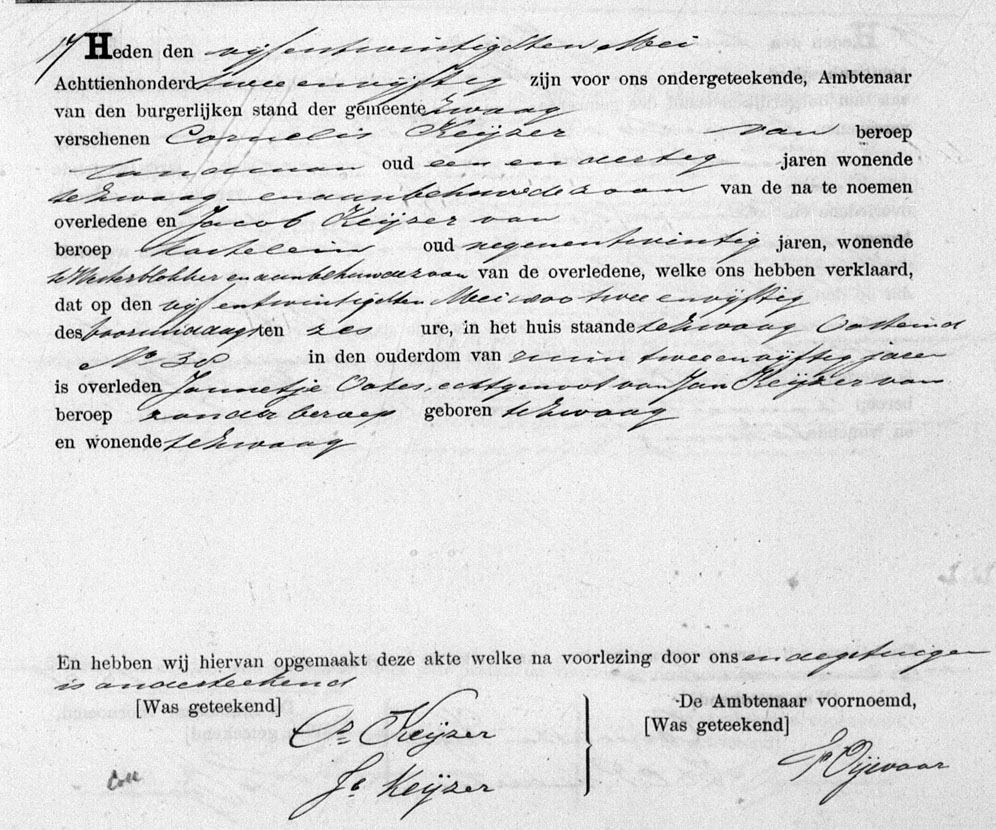 17 Heden den vijfentwintigsten Mei
Achttienhonderd twee en vijftig zijn voor ons ondergeteekende, Ambtenaar
van den burgerlijken stand der gemeente Zwaag
verschenen Cornelis Keijzer van beroep
landman oud een en dertig jaren wonende
te Zwaag en aanbehuwdezoon van de na te noemen
overledene en Jacob Keijzer van
beroep kastelein oud negenentwintig jaren, wonende
te Westerblokker en aanbehuwdezoon van de overledene, welke ons hebben verklaard,
dat op den vijfentwintigsten Mei 1800 twee envijftig
des voormiddags ten zes ure, in het huis staande te Zwaag Oosteind
No 30 in den ouderdom van ruim tweeenvijftig jaren
is overleden Jannetje Ootes, echtgenoot van Jan Keijzer van
beroep zonder beroep geboren te Zwaag
en wonende te Zwaag
En hebben wij hiervan opgemaakt deze akte welke na voorlezing door ons en de getuigen
is onderteekend
[Was geteekend] De Ambtenaar voornoemd,
[Was geteekend]
Cs Keijzer
Jb Keijzer